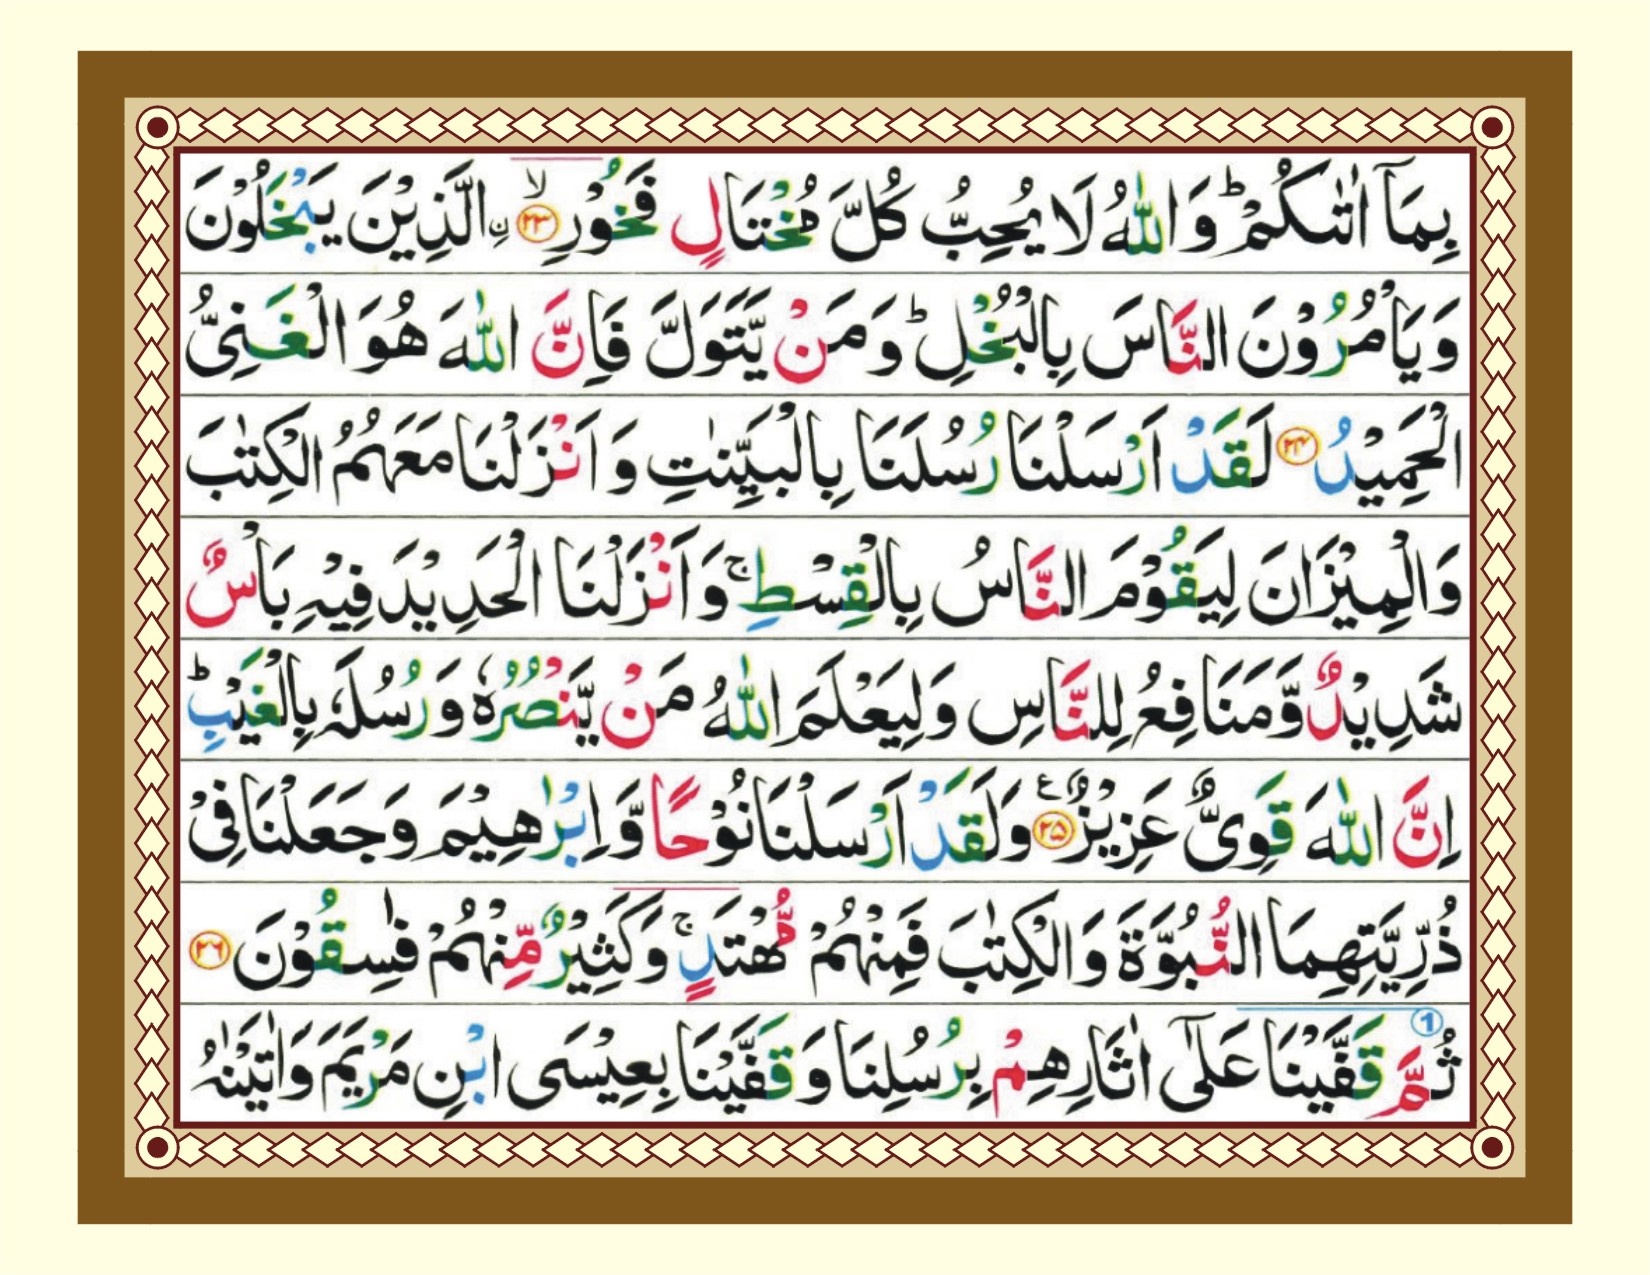 بِمَآ اٰتٰىكُمْ ؕ وَ اللّٰهُ لَا یُحِبُّ كُلَّ مُخْتَالٍ فَخُوْرِ ۙ﴿۲۳﴾ ِ۟الَّذِیْنَ یَبْخَلُوْنَ
وَیَاْمُرُوْنَ النَّاسَ بِالْبُخْلِ ؕ وَ مَنْ یَّتَوَلَّ فَاِنَّ اللّٰهَ هُوَ الْغَنِیُّ
الْحَمِیْدُ ﴿۲۴﴾ لَقَدْ اَرْسَلْنَا رُسُلَنَا بِالْبَیِّنٰتِ وَ اَنْزَلْنَا مَعَهُمُ الْكِتٰبَ
وَالْمِیْزَانَ لِیَقُوْمَ النَّاسُ بِالْقِسْطِ ۚ وَ اَنْزَلْنَا الْحَدِیْدَ فِیْهِ بَاْسٌ
شَدِیْدٌ وَّ مَنَافِعُ لِلنَّاسِ وَ لِیَعْلَمَ اللّٰهُ مَنْ یَّنْصُرُهٗ وَ رُسُلَهٗ بِالْغَیْبِ ؕ
اِنَّ اللّٰهَ قَوِیٌّ عَزِیْزٌ ﴿۲۵﴾ ع وَ لَقَدْ اَرْسَلْنَا نُوْحًا وَّ اِبْرٰهِیْمَ وَ جَعَلْنَا فِیْ
ذُرِّیَّتِهِمَا النُّبُوَّةَ وَ الْكِتٰبَ فَمِنْهُمْ مُّهْتَدٍ ۚ وَ كَثِیْرٌ مِّنْهُمْ فٰسِقُوْنَ ﴿۲۶﴾
1 ثُمَّ قَفَّیْنَا عَلٰۤی اٰثَارِهِمْ بِرُسُلِنَا وَ قَفَّیْنَا بِعِیْسَی ابْنِ مَرْیَمَ وَ اٰتَیْنٰهُ